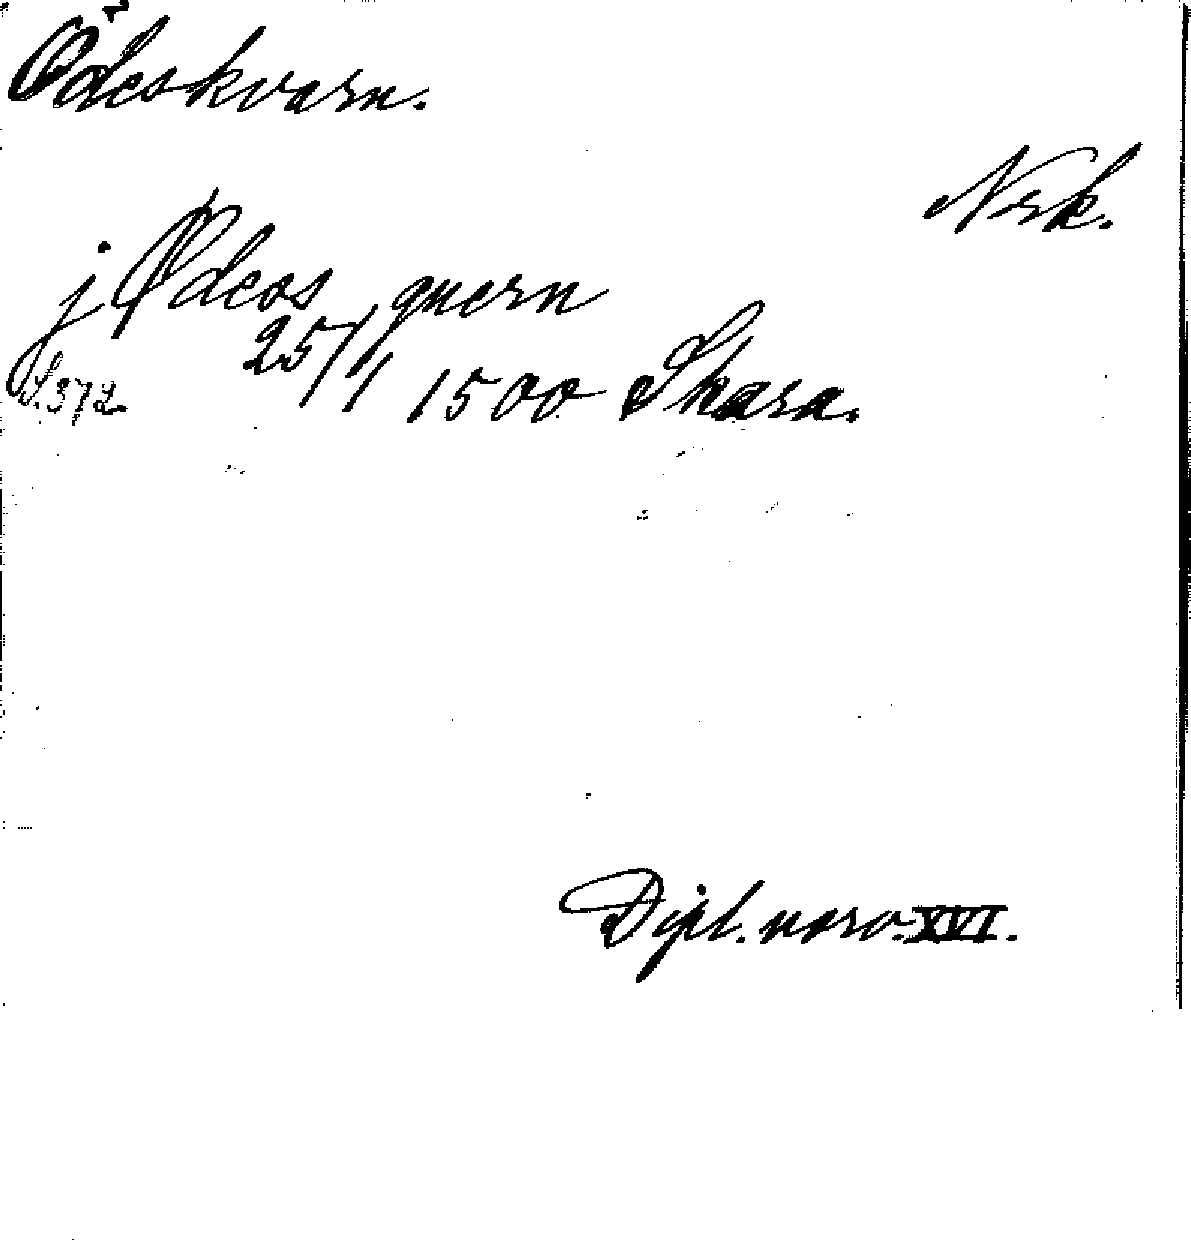 Ödeskvarn.
Nrk.
j Ødeos quern
25/1 1500 Skara.
S. 372.
Dipl. norv. XVI.